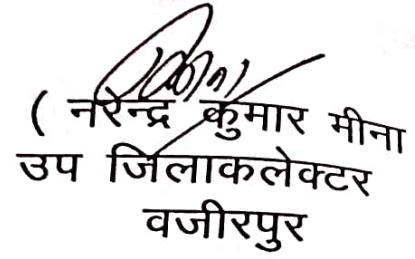 ( नरेन्द्र कुमार मीना
उप जिलाकलेक्टर
वजीरपुर